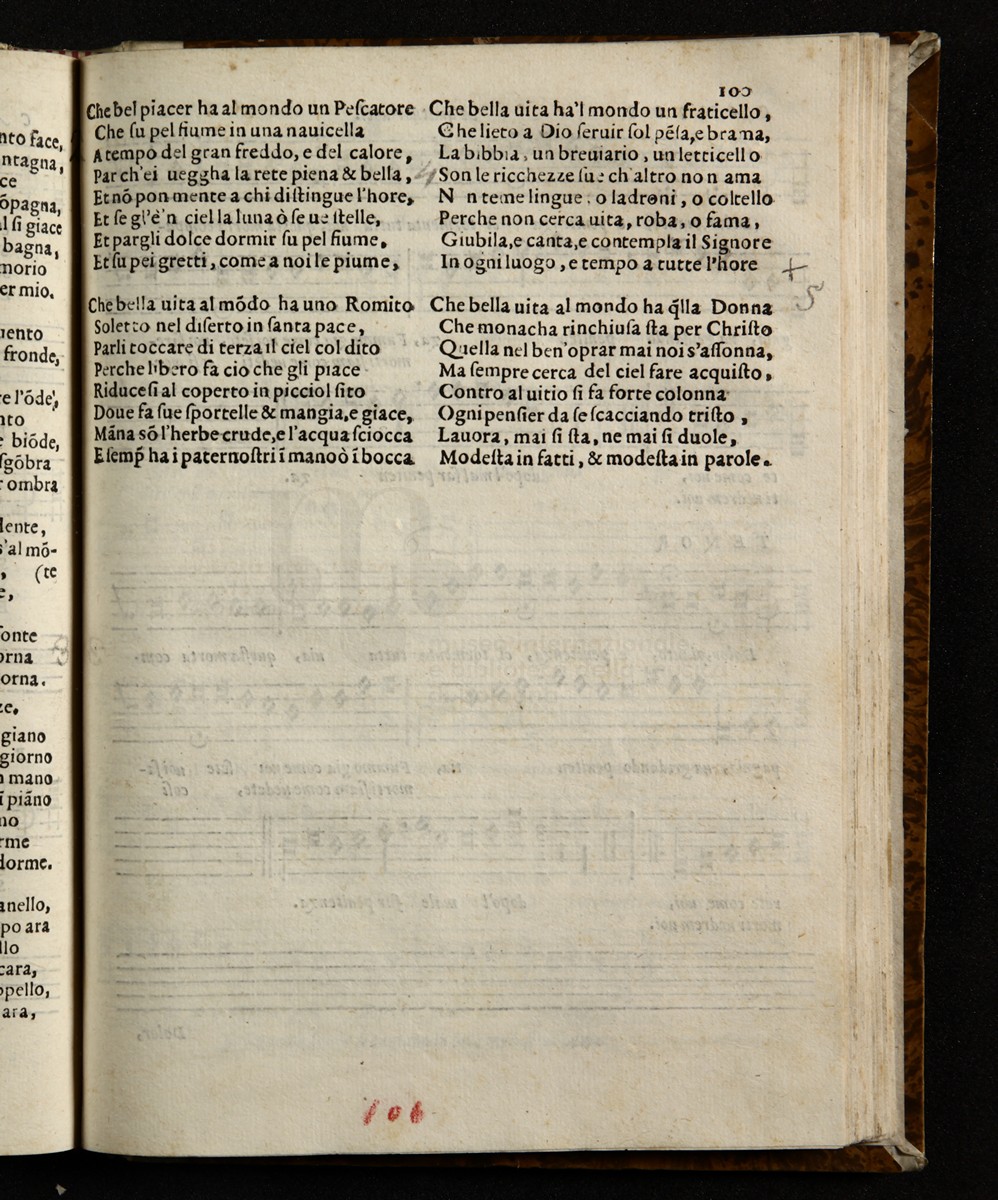 nto face,
ntagna,
ce
ōpagna,
al ſi giace
bagna,
morio
er mio.
nento
fronde,
re l'ōde',
nto
e biōde,
ſgōbra
r ombra
lente,
s'al mō-
, (te
e,
onte
orna
orna.
ze,
giano
giorno
n mano
ī piāno
no
rme
dorme.
anello,
po ara
llo
cara,
ppello,
ara,
100
Che bel piacer ha al mondo un Peſcatore
Che ſu pel fiume in una nauicella
A tempo del gran freddo, e del calore,
Par ch'ei ueggha la rete piena & bella,
Et nō pon mente a chi diſtingue l'hore,
Et ſe gl'è'n ciel la luna ò ſe ue ſtelle,
Et pargli dolce dormir ſu pel fiume,
Et ſu pei gretti, come a noi le piume,
Che bella uita al mōdo ha uno Romito
Soletto nel diſerto in ſanta pace,
Parli toccare di terza il ciel col dito
Perche libero fa cio che gli piace
Riduceſi al coperto in picciol ſito
Doue fa ſue ſportelle & mangia,e giace,
Māna sō l'herbe crude,e l'acqua ſciocca
E ſemp̄ ha i paternoſtri ī mano ò ī bocca
Che bella uita ha'l mondo un fraticello,
Che lieto a Dio ſeruir ſol pēſa,e brama,
La bibbia, un breuiario, un letticello
Son le ricchezze ſue ch'altro non ama
N n teme lingue, o ladroni, o coltello
Perche non cerca uita, roba, o fama,
Giubila,e canta,e contempla il Signore
In ogni luogo, e tempo a tutte l'hore
Che bella uita al mondo ha q̄lla Donna
Che monacha rinchiuſa ſta per Chriſto
Quella nel ben'oprar mai noi s'aſſonna,
Ma ſempre cerca del ciel fare acquiſto,
Contro al uitio ſi fa forte colonna
Ogni penſier da ſe ſcacciando triſto,
Lauora, mai ſi ſta, ne mai ſi duole,
Modeſta in fatti, & modeſta in parole.
5
106